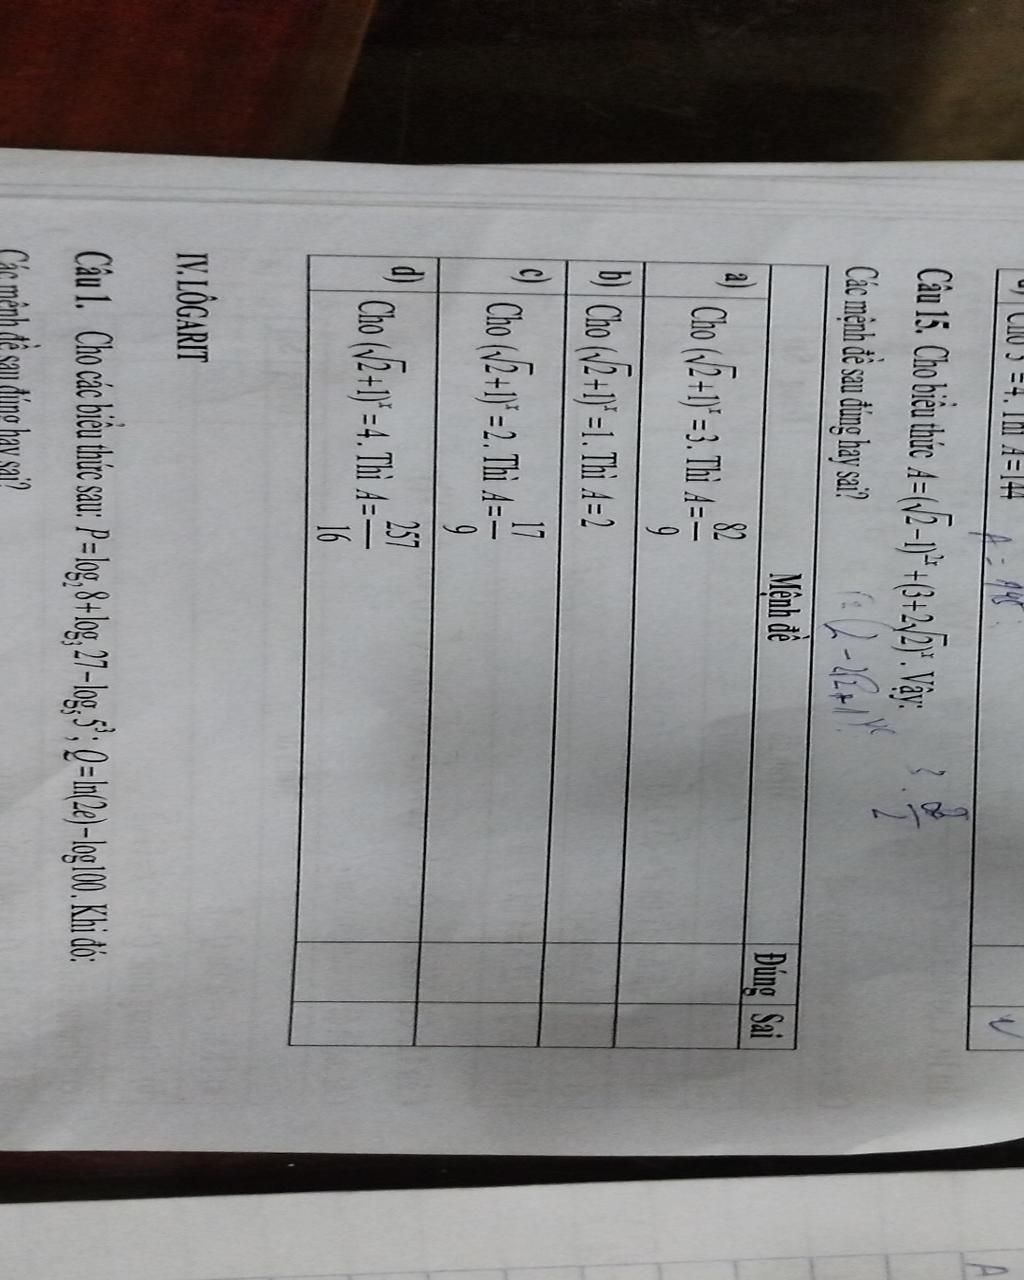 Cho 3 = 4. Thì A = 144
A =
Câu 15. Cho biểu thức A = (√2 − 1)^{2x} + (3 + 2√2)^x. Vậy:
Các mệnh đề sau đúng hay sai?
Mệnh đề Đúng Sai
a) Cho (√2 + 1)^x = 3. Thì A = 82/9
b) Cho (√2 + 1)^x = 1. Thì A = 2
c) Cho (√2 + 1)^x = 2. Thì A = 17/9
d) Cho (√2 + 1)^x = 4. Thì A = 257/16
IV. LÔGARIT
Câu 1. Cho các biểu thức sau: P = log₂ 8 + log₃ 27 − log₅ 5³; Q = ln(2e) − log100. Khi đó:
Các mệnh đề sau đúng hay sai?